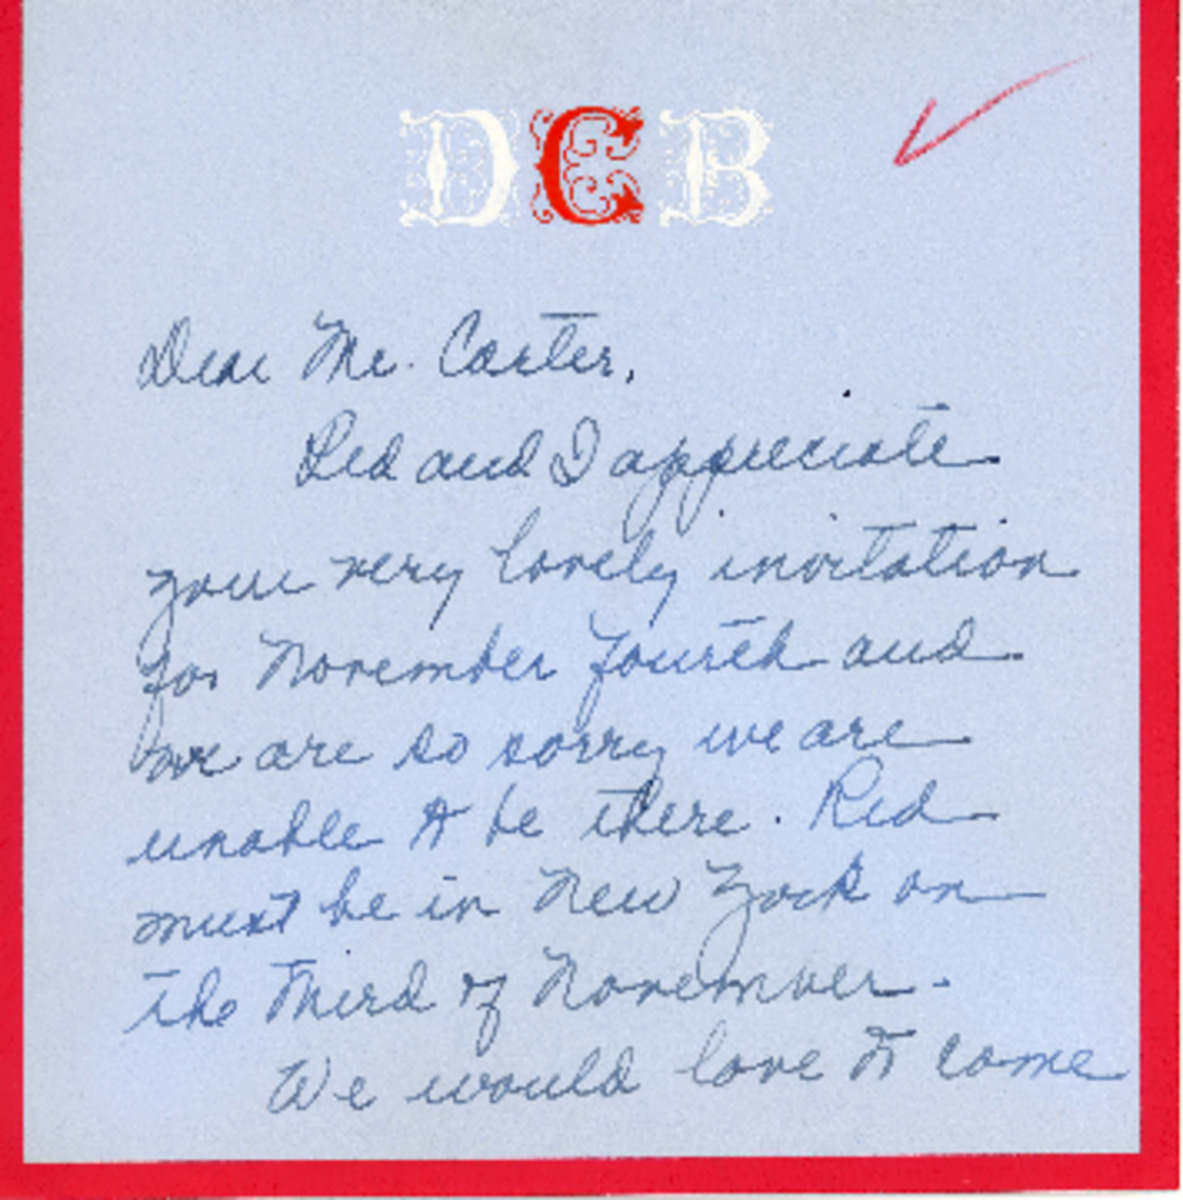 DCB
Dear Mr. Carter,
Red and I appreciate
your very lovely invitation
for November fourth and
we are so sorry we are
unable to be there. Red
must be in New York on
the third of November.
We would love to come